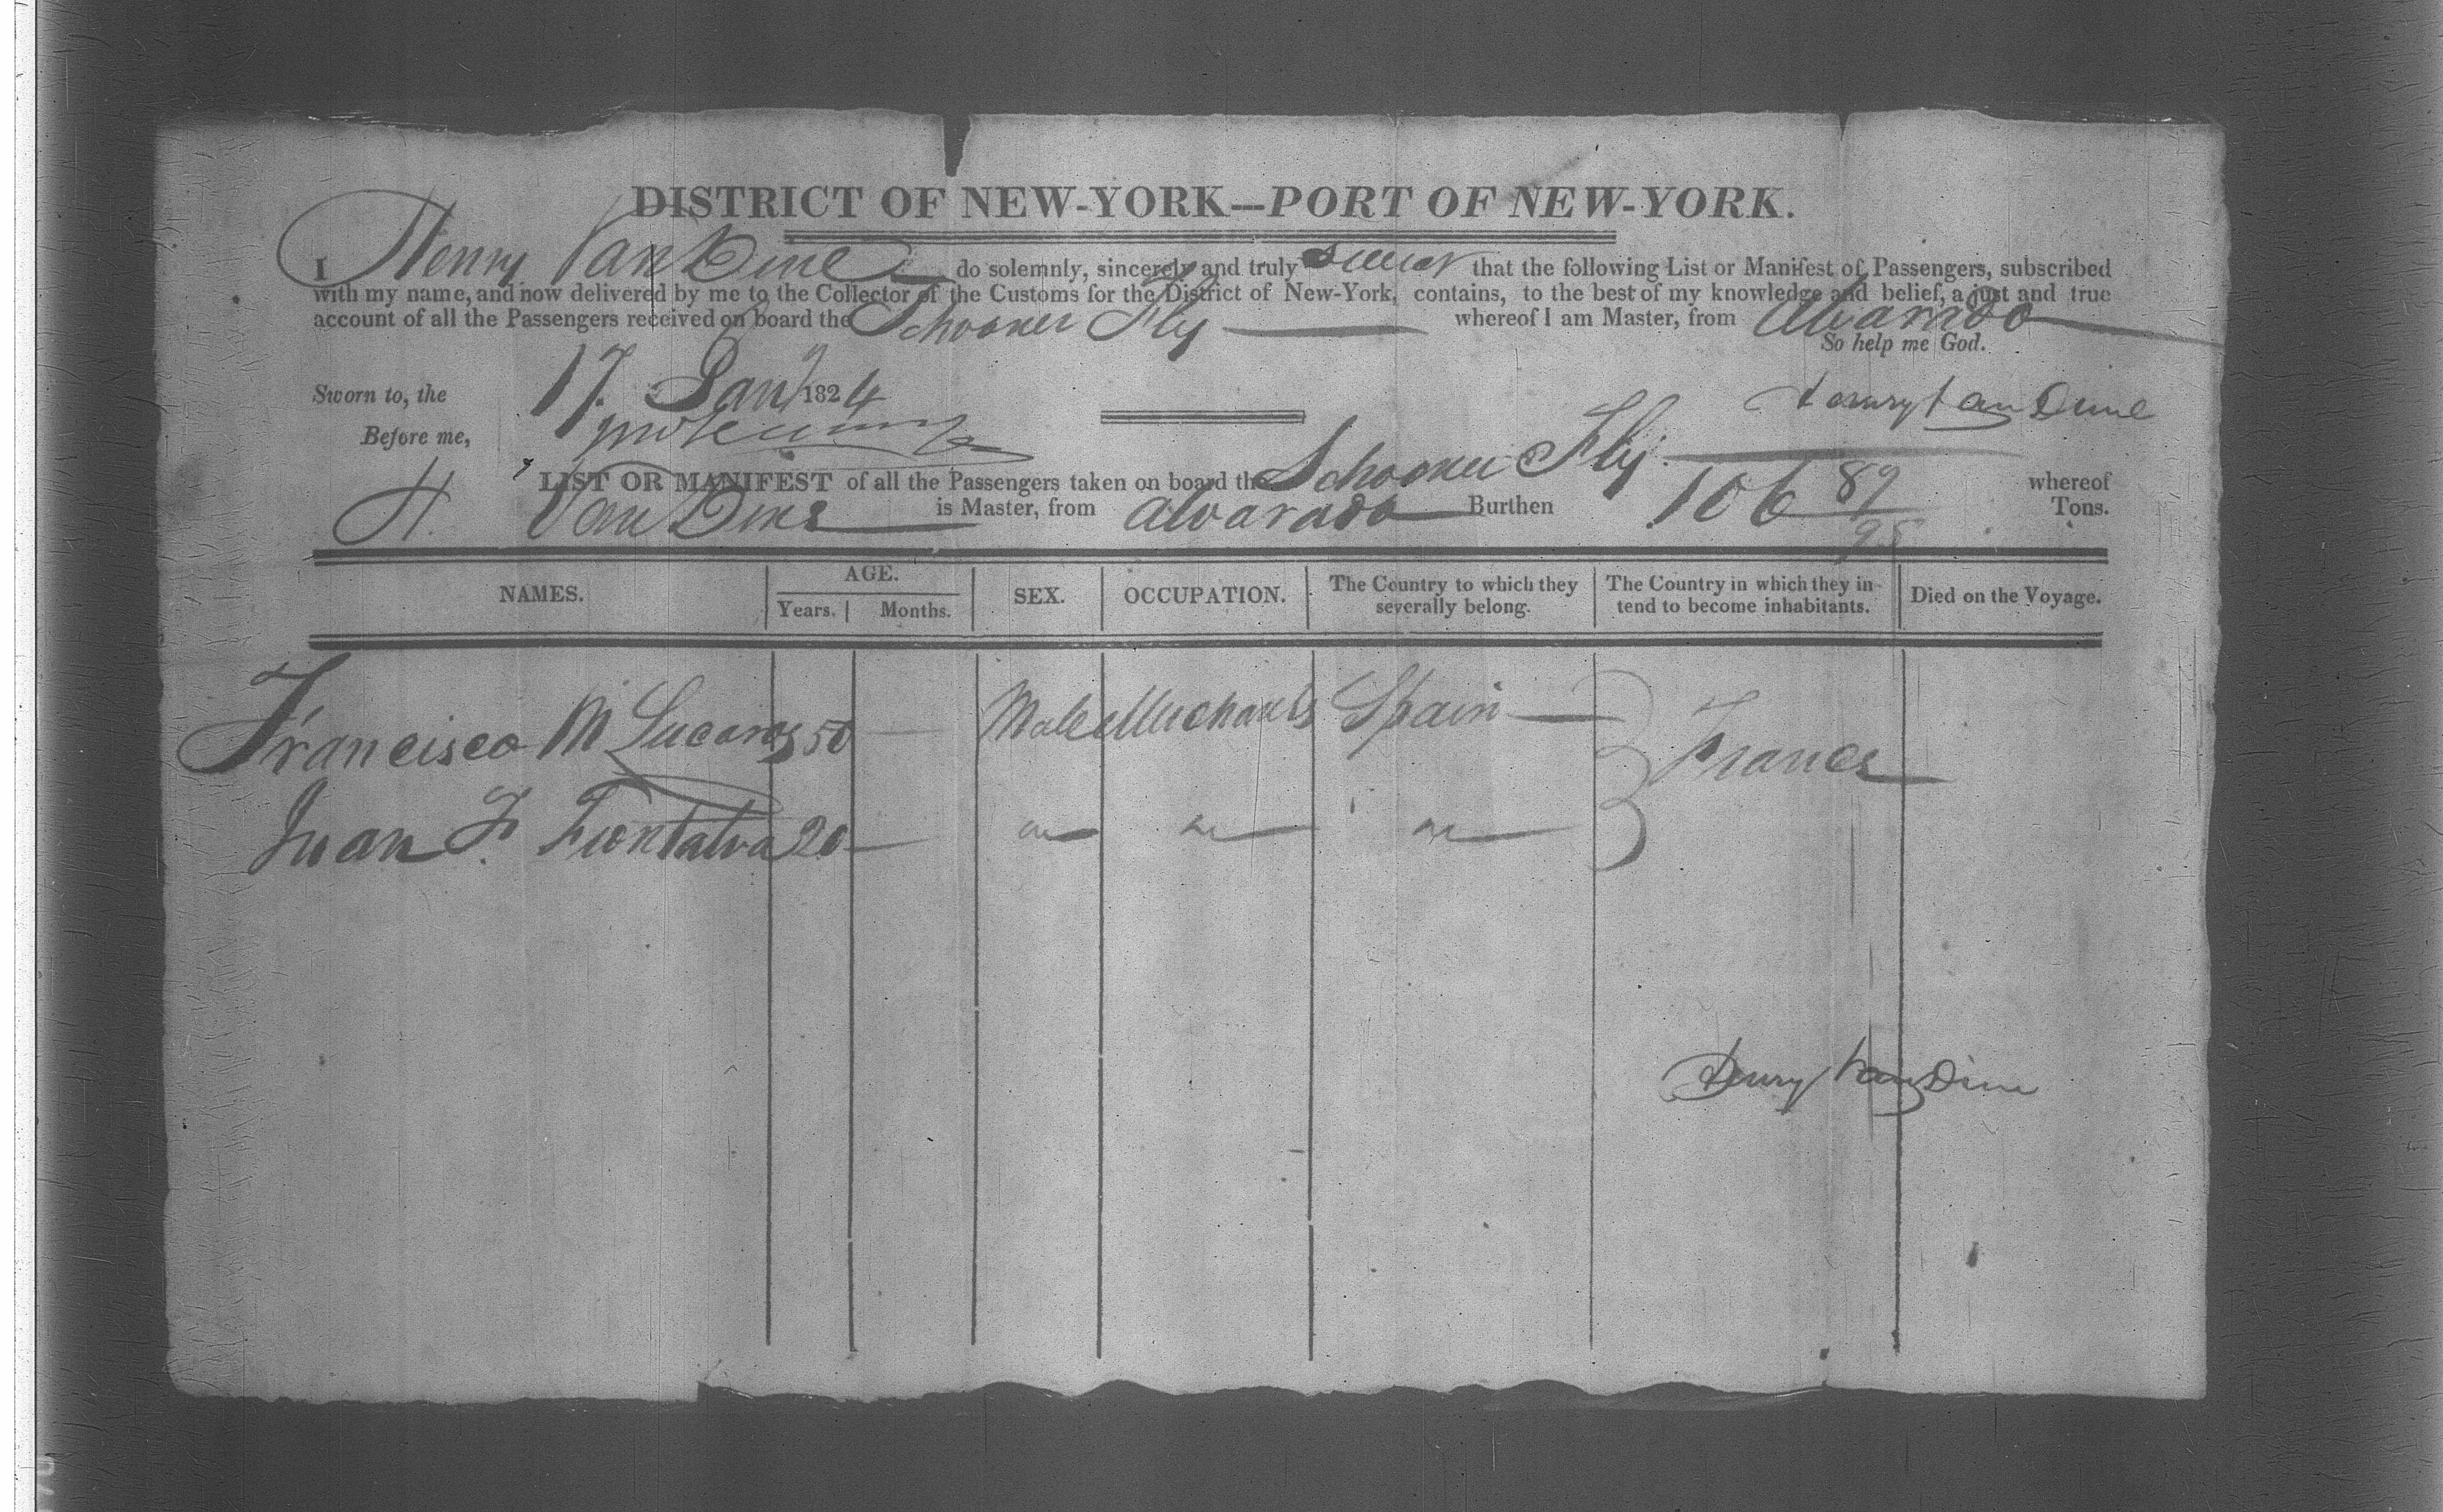 DISTRICT OF NEW-YORK—PORT OF NEW-YORK.
I Henry Van Dine do solemnly, sincerely and truly swear that the following List or Manifest of Passengers, subscribed
with my name, and now delivered by me to the Collector of the Customs for the District of New-York, contains, to the best of my knowledge and belief, a just and true
account of all the Passengers received on board the Schooner Fly whereof I am Master, from Alvarado
So help me God.
Sworn to, the 17 Jany 1824 Henry Van Dine
Before me,
LIST OR MANIFEST of all the Passengers taken on board the Schooner Fly whereof
H. Van Dine is Master, from Alvarado Burthen 106 89/95 Tons.
NAMES. AGE. Years. Months. SEX. OCCUPATION. The Country to which they severally belong. The Country in which they intend to become inhabitants. Died on the Voyage.
Francisco M 50 Male Merchants Spain France
Juan F. 20
Henry Van Dine